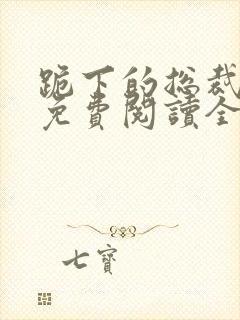 跪下的总裁
免費閱讀全
七寶